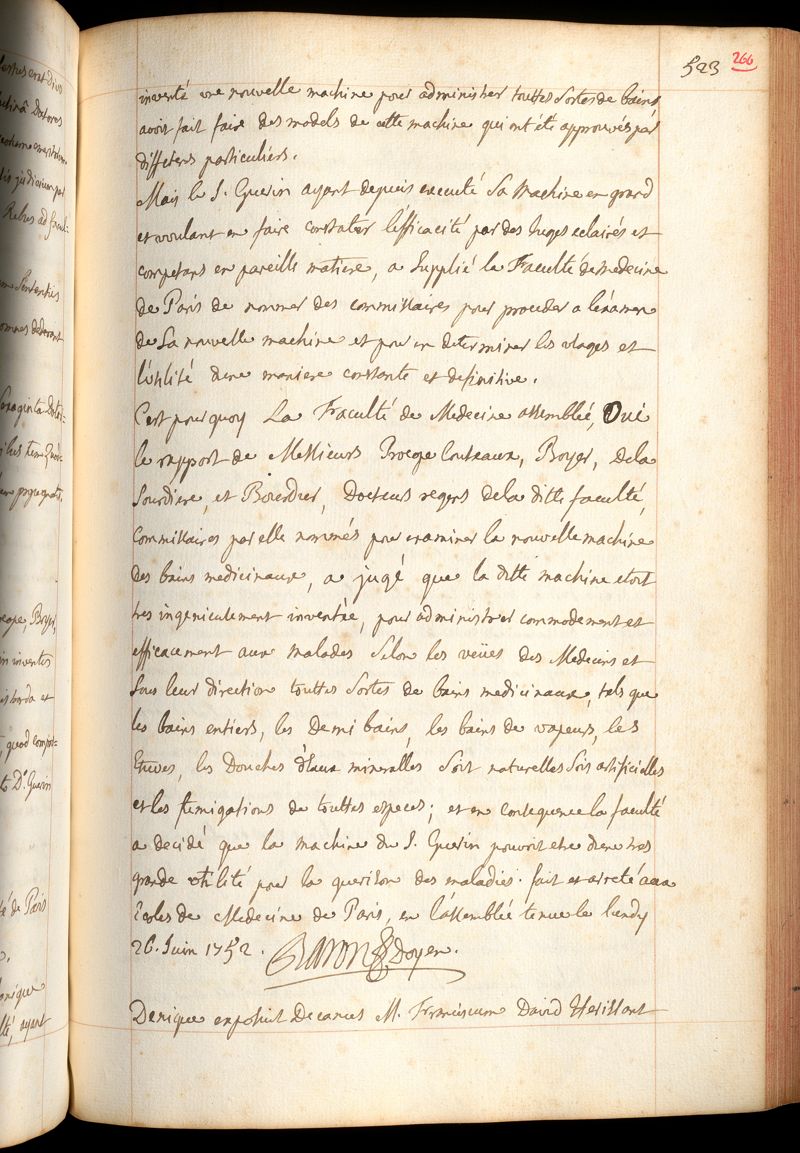 523 266
inventé une nouvelle machine pour administrer touttes sortes de bains
avoit fait faire des models de cette machine qui ont été approuvés par
differens particuliers.
Mais le S. Guerin ayant depuis executé sa machine en grand
et voulant en faire constater l'efficacité par des Juges eclairés et
competans en pareille matiere, a supplié la Faculté de Medecine
de Paris de nommer des commissaires pour proceder a l'examen
de sa nouvelle machine et pour en determiner les usages et
l'utilité d'une maniere constante et definitive.
C'est pourquoy La Faculté de Medecine assemblée, Oui
le rapport de Messieurs Procope Couteaux, Boyer, Dela
Sourdiere, et Bourdier, Docteurs regens dela ditte faculté,
Commissaires par elle nommés pour examiner la nouvelle machine
des bains medicinaux, a jugé que la ditte machine etoit
tres ingenieusement inventée, pour administrer commodement et
efficacement aux malades selon les veües des Medecins et
sous leur direction touttes sortes de bains medicinaux, tels que
les bains entiers, les Demi bains, les bains de vapeurs, les
Etuves, les Douches d'Eaux mineralles soit naturelles soit artificielles
et les fumigations de touttes especes; et en consequence la faculté
a decidé que la machine du S. Guerin pouvoit etre d'une tres
grande utilité pour la guerison des maladies. fait et arreté aux
Ecoles de Medecine de Paris, en l'assemblée tenue le lundy
26. Juin 1752. Baron Doyen.
Denique exposuit Decanus M. Franciscum David Herissant